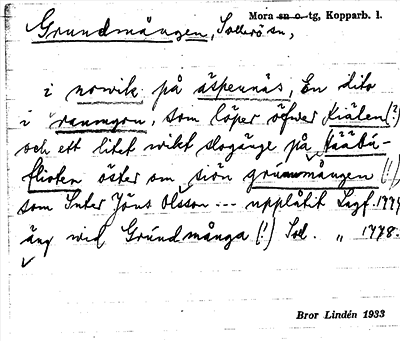 Grundmången, Sollerö sn,
Mora sn o. tg, Kopparb. l.
i norvik på äspernäs, En dito
i raumyrn, som löper öfver Kiälen (?)
och ett litet wikt slogänge på Hääbú-
flioten öster om siön grúnmången (!)
som Inter Jöns Olsson --- upplåtit Lagf. 1774
äng wid Grúndmånga (!) Sol. „ 1778.
Bror Lindén 1933